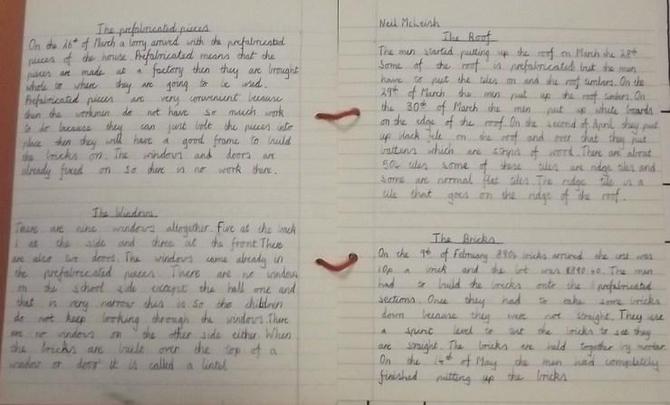 The prefabricated pieces
On the 26th of March a lorry arrived with the prefabricated
pieces of the house. Prefabricated means that the
pieces are made at a factory then they are brought
whole to where they are going to be used.
Prefabricated pieces are very convenient because
then the workmen do not have so much work
to do because they can just bolt the pieces into
place then they will have a good frame to build
the bricks on. The windows and doors are
already fixed on so there is no work there.
The Windows
There are nine windows altogether. Five at the back
1 at the side and three at the front. There
are also two doors. The windows came already in
the prefabricated pieces. There are no windows
on the school side except the hall one and
that is very narrow this is so the children
do not keep looking through the windows. There
are no windows on the other side either. When
the bricks are built over the top of a
window or door it is called a lintel
Neil McLeish
The Roof
The men started putting up the roof on March the 28th
Some of the roof is prefabricated but the men
have to put the tiles on and the roof timbers. On the
29th of March the men put up the roof timbers. On
the 30th of March the men put up white boards
on the edge of the roof. On the second of April they put
up black felt on the roof and over that they put
battens which are strips of wood. There are about
tiles some of these tiles are ridge tiles and
some are normal flat tiles. The ridge tile is a
tile that goes on the ridge of the roof.
The Bricks
On the 9th of February 8904 bricks arrived the cost was
10p a brick and the lot was £890.40. The men
had to build the bricks onto the prefabricated
sections. Once they had to take some bricks
down because they were not straight. They use
a spirit level to the bricks to see they
are straight. The bricks are held together by mortar
On the 14th of May the men had completely
finished putting up the bricks